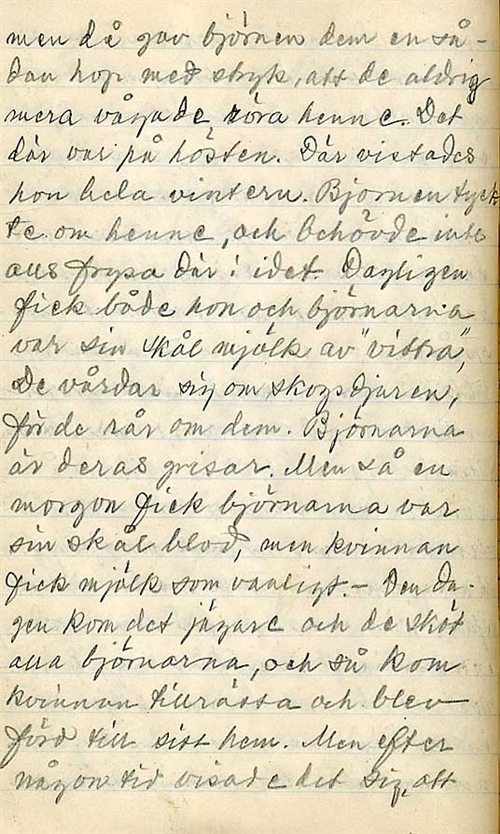 men då gav björnen dem en så-
dan hop med stryk, att de aldrig
mera vågade röra henne. Det
där var på hösten. Där vistades
hon hela vintern. Björnen tyck-
te om henne, och behövde inte
alls frysa där i idet. Dagligen
fick både hon och björnarna
var sin skål mjölk av "vittra",
De vårdar sig om skogsdjuren,
för de rår om dem. Björnarna
är deras grisar. Men så en
morgon fick björnarna var
sin skål blod, men kvinnan
fick mjölk som vanligt. - Den da-
gen kom det jägare och de sköt
alla björnarna, och så kom
kvinnan tillrätta och blev
förd till sist hem. Men efter
någon tid visade det sig, att